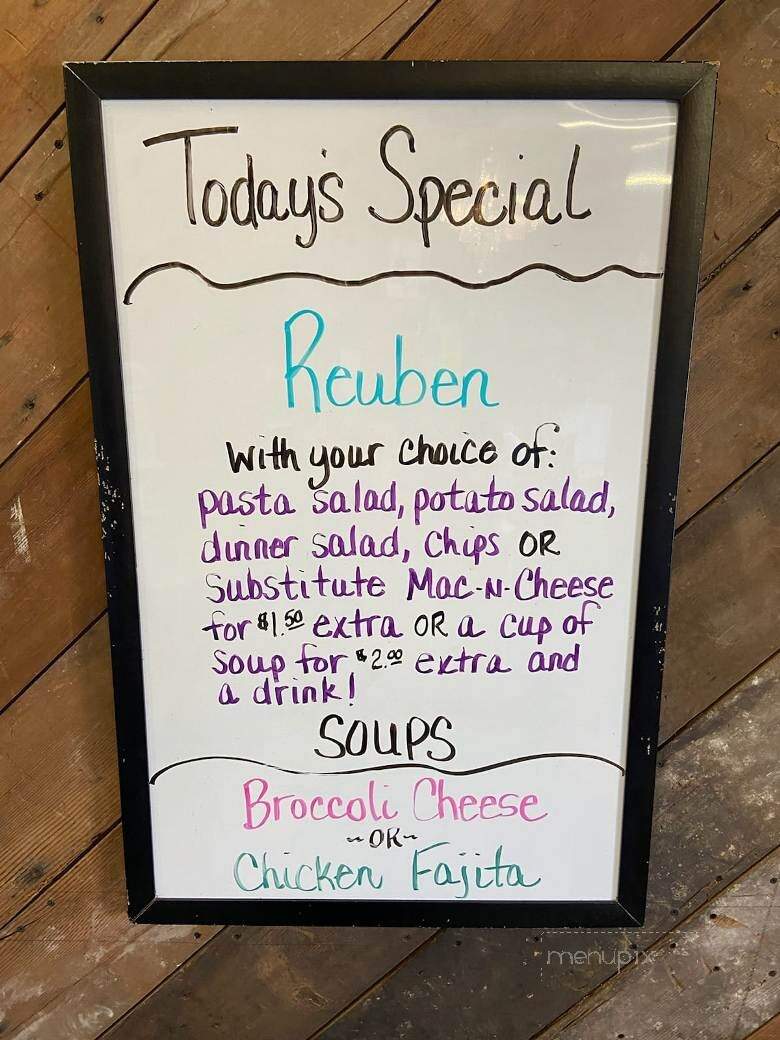 Today's Special
Reuben
with your choice of:
pasta salad, potato salad,
dinner salad, chips OR
Substitute Mac-N-Cheese
for $1.50 extra OR a cup of
soup for $2.00 extra and
a drink!
SOUPS
Broccoli Cheese
~OR~
Chicken Fajita
menupix